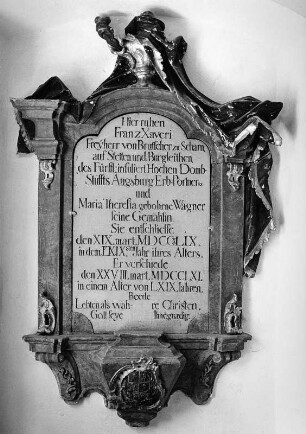 Hier ruhen
Franz Xaveri
Freyherr von Beutscher zu Scham,
auf Stetten und Burgleithen,
des Fürstl. infulirt Hochen Domb-
Stuffts Augsburg Erb-Portner
und
Maria Theresia gebohrne Wagner
seine Gemahlin
Sie entschliefse
den XIX. mart. MDCCLIX.
in dem Jahr ihres Alters,
Er verschiede
den XXVIII. mart. MDCCLXI.
in einem Alter von LXIX. Jahren,
Beede
Lebten als wah- re Christen,
Gott seye Ihne gnädig.